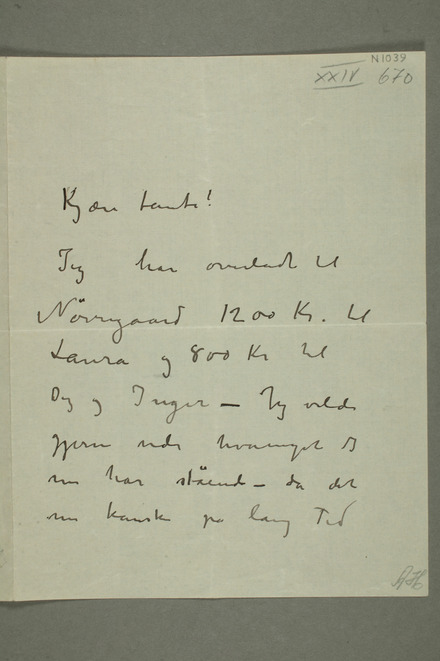 N 1039
XXIV 670
Kjære tante!
Jeg har overladt til
Nörregaard 1200 Kr. til
Laura og 800 Kr til
Dig og Inger – Jeg vilde
gjerne vide hvormeget I
nu har stående – da det
nu kanske på lang Tid